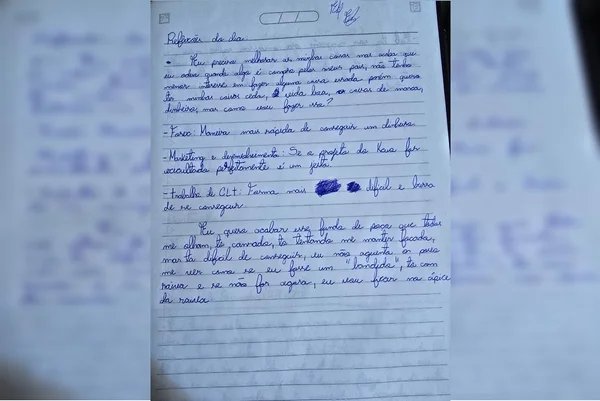 Reflexões do dia
- Eu preciso melhorar as minhas coisas mas acho que
eu odeio quando algo é compra pelos meus pais, não tenho
menor interesse em fazer alguma coisa errada porém quero
ter minhas coisas cedo, vida boa, coisas de marca,
dinheiro, mas como vou fazer isso?
- Maneira mais rápida de conseguir um dinheiro.
- Marketing e desenvolvimento: Se o projeto da for
executado perfeitamente é um jeito.
- trabalho de CLT: Forma mais difícil e
de se conseguir.
Eu quero acabar esse de poço que todos
me olham, tô cansada, tô tentando me manter focada,
mas tá difícil de conseguir, eu não aguento os
me ver como se eu fosse um "bandida", tô com
raiva e se não for agora, eu vou ficar no ápice
da raiva.